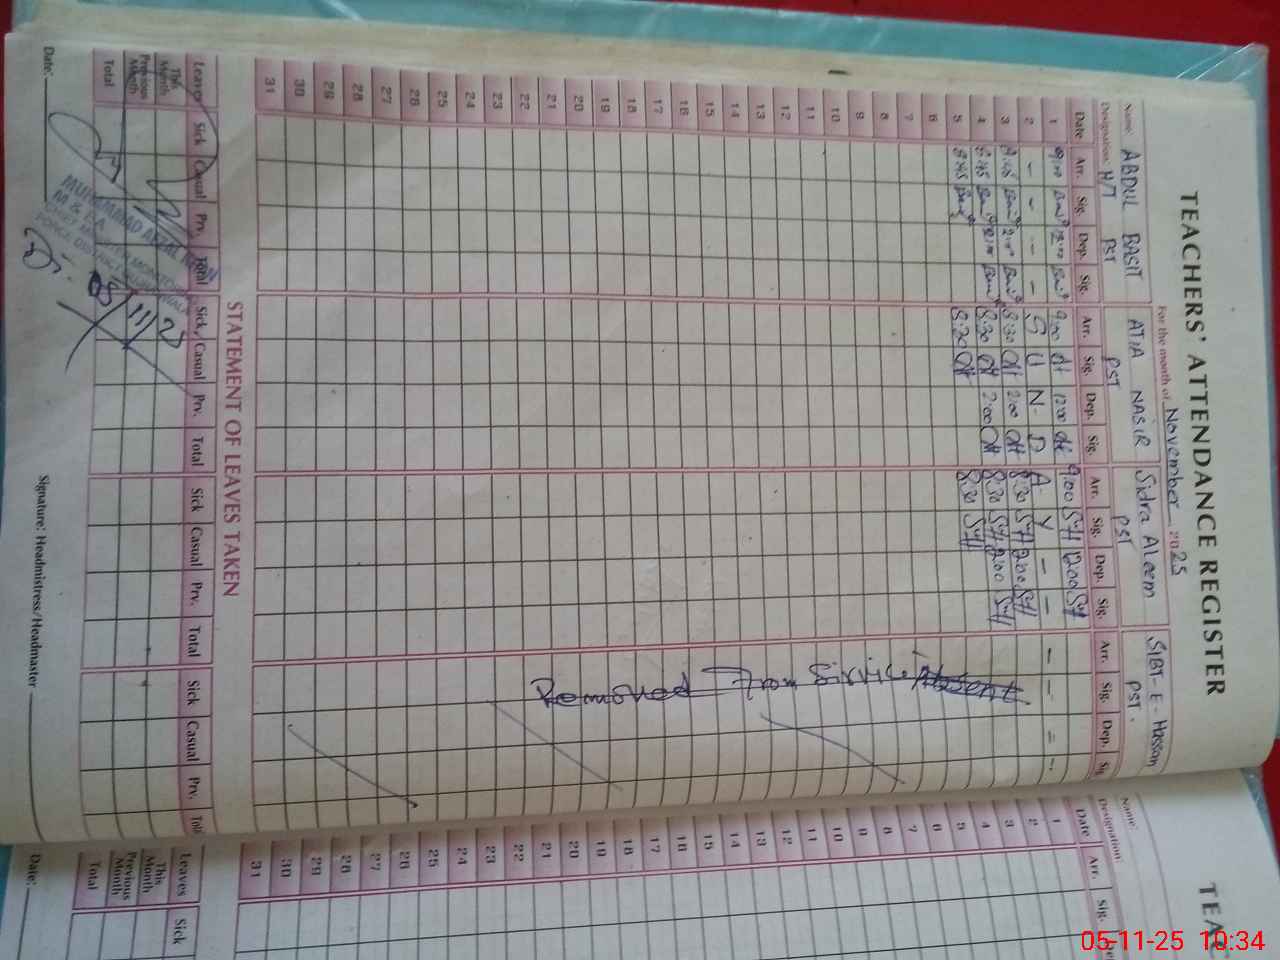 TEACHERS' ATTENDANCE REGISTER
For the month of November 2025
Name: ABDUL BASIT ATIA NASIR Sidra Aleem SIBT-E-Hassan
Designation: H/T PST PST PST PST.
Date Arr. Sig. Dep. Sig. Arr. Sig. Dep. Sig. Arr. Sig. Dep. Sig. Arr. Sig. Dep. Sig.
1 9:00 12:00 9:00 12:00 9:00 SH 12:00 SH
2 - - - - S U N - D A - Y - - - - - -
3 8:45 2:00 8:30 2:00 8:30 SH 2:00 SH
4 8:45 2:00 8:30 2:00 8:30 SH 2:00 SH
5 8:45 8:20 8:30 SH
6
7
8
9
10
11
12
13
14
15
16
17
18
19
20
21
22
23
24
25
26
27
28
29
30
31
Removed From Sirvice
STATEMENT OF LEAVES TAKEN
Leaves Sick Casual Prv. Total Sick Casual Prv. Total Sick Casual Prv. Total Sick Casual Prv.
This Month
Previous Month
Total
MUHAMMAD
M & E A
Date:
Signature: Headmistress/Headmaster
TEAC
Name:
Designation:
Date Arr. Sig.
1
2
3
4
5
6
7
8
9
10
11
12
13
14
15
16
17
18
19
20
21
22
23
24
25
26
27
28
29
30
31
Leaves Sick
This Month
Previous Month
Total
Date:
05-11-25 10:34